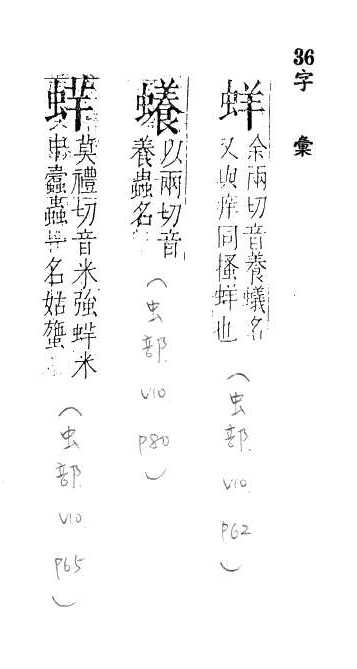 36字彙
蛘
余兩切音養蟻名
又與痒同搔蛘也
(虫部 V10 P62)
蟻
以兩切音
養蟲名
(虫部 V10 P80)
莫禮切音米強蛘米
中蠹蟲一名姑
(虫部 V10 P65)